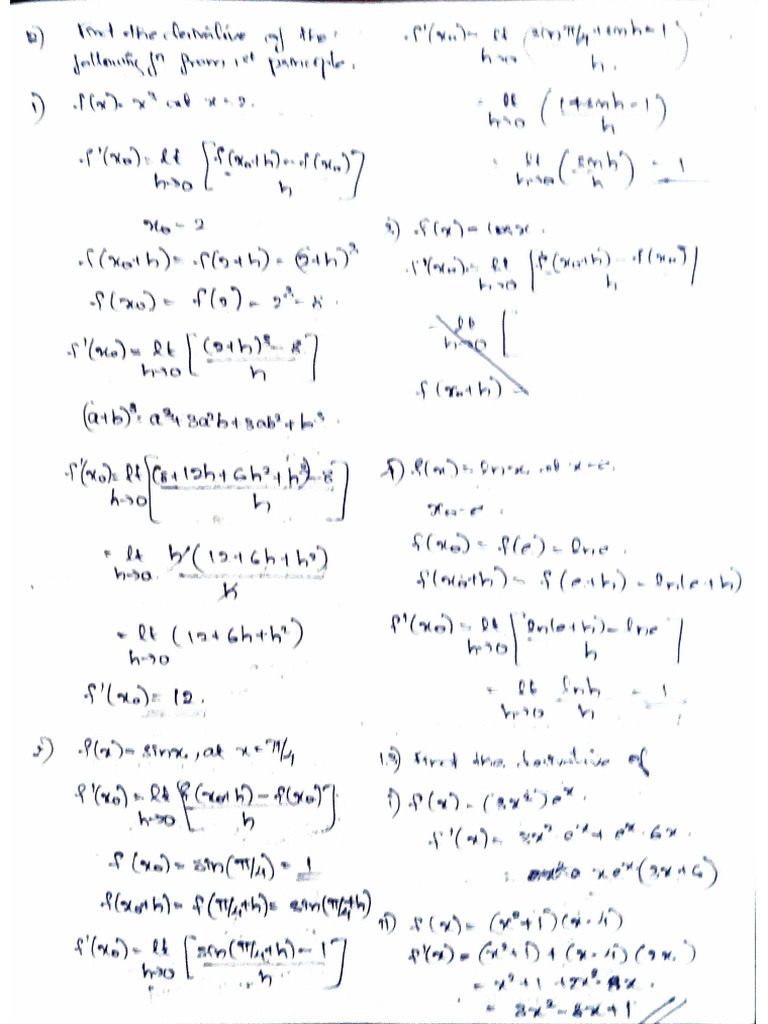 12) Find the derivative of the
following fn from 1st principle.
i) f(x) = x³ at x = 2.
f'(x₀) = lt h→0 [f(x₀+h) - f(x₀) / h]
x₀ = 2
f(x₀+h) = f(2+h) = (2+h)³
f(x₀) = f(2) = 2³ = 8.
f'(x₀) = lt h→0 [(2+h)³ - 8 / h]
(a+b)³ = a³ + 3a²b + 3ab² + b³.
f'(x₀) = lt h→0 [(8+12h+6h²+h³) - 8 / h]
= lt h→0 h(12+6h+h²) / h
= lt h→0 (12+6h+h²)
f'(x₀) = 12.
f(x) = sinx, at x = π/4
f'(x₀) = lt h→0 [f(x₀+h) - f(x₀) / h]
f(x₀) = sin(π/4) = 1
f(x₀+h) = f(π/4+h) = sin(π/4+h)
f'(x₀) = lt h→0 [sin(π/4+h) - 1 / h]
f'(x₀) = lt h→0 (sin π/4 + sinh - 1 / h)
= lt h→0 (1+sinh-1 / h)
= lt h→0 (sinh / h) = 1
f(x) = cosx.
f'(x₀) = lt h→0 [f(x₀+h) - f(x₀) / h]
= lt h→0 [
f(x₀+h) =
f(x) = lnx, at x = e.
x₀ = e.
f(x₀) = f(e) = lne.
f(x₀+h) = f(e+h) = ln(e+h)
f'(x₀) = lt h→0 [ln(e+h) - lne / h]
= lt h→0 lnh / h = 1
13) Find the derivative of
i) f(x) = (3x²)eˣ.
f'(x) = 3x² · eˣ + eˣ · 6x.
= xeˣ(3x+6)
ii) f(x) = (x²+1)(x-4)
f'(x) = (x²+1) + (x-4)(2x)
= x²+1+2x²-8x.
= 3x²-8x+1